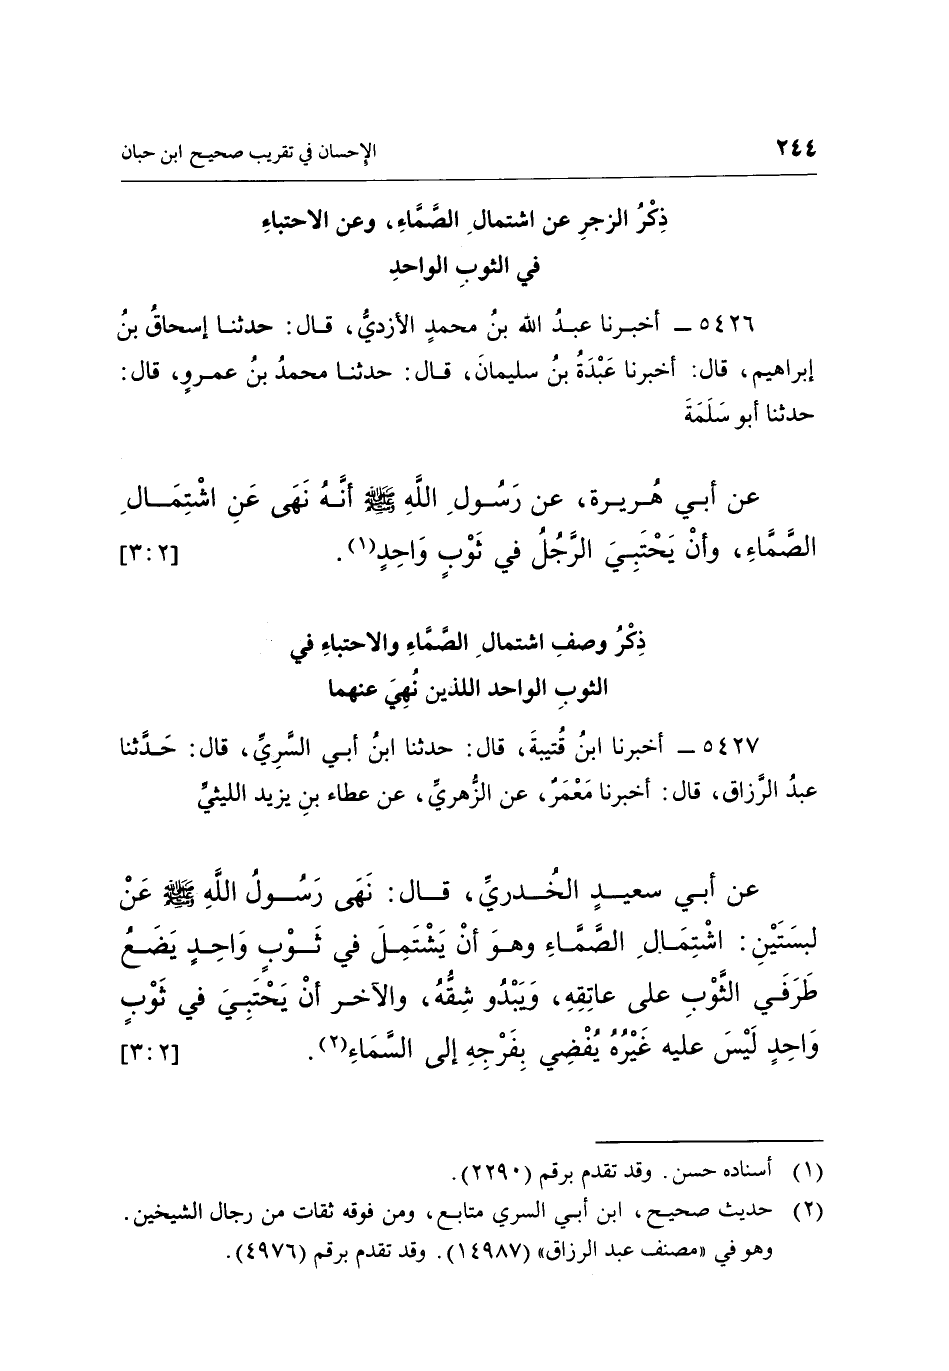 ٢٤٤ الإحسان في تقريب صحيح ابن حبان
ذِكْرُ الزجرِ عن اشتمالِ الصَّمَّاءِ، وعن الاحتباءِ
في الثوبِ الواحدِ
٥٤٢٦ ــ أخبرنا عبدُ الله بنُ محمدٍ الأزديُّ، قال: حدثنا إسحاقُ بنُ
إبراهيم، قال: أخبرنا عَبْدَةُ بنُ سليمانَ، قال: حدثنا محمدُ بنُ عمروٍ، قال:
حدثنا أبو سَلَمَةَ
عن أبي هُريرة، عن رَسُولِ اللَّهِ ﷺ أنَّهُ نَهَى عَنِ اشْتِمَالِ
الصَّمَّاءِ، وأنْ يَحْتَبِيَ الرَّجُلُ في ثَوْبٍ وَاحِدٍ(١). [٣:٢]
ذِكْرُ وصفِ اشتمالِ الصَّمَّاءِ والاحتباءِ في
الثوبِ الواحد اللذين نُهِيَ عنهما
٥٤٢٧ ــ أخبرنا ابنُ قُتيبةَ، قال: حدثنا ابنُ أبي السَّرِيِّ، قال: حَدَّثنا
عبدُ الرَّزاق، قال: أخبرنا مَعْمَرٌ، عن الزُّهريِّ، عن عطاء بنِ يزيد الليثيِّ
عن أبي سعيدٍ الخُدريِّ، قال: نَهَى رَسُولُ اللَّهِ ﷺ عَنْ
لبسَتَيْنِ: اشْتِمَالِ الصَّمَّاءِ وهوَ أنْ يَشْتَمِلَ في ثَوْبٍ وَاحِدٍ يَضَعُ
طَرَفَي الثَّوْبِ على عاتِقِهِ، وَيَبْدُو شِقُّهُ، والآخر أنْ يَحْتَبِيَ في ثَوْبٍ
وَاحِدٍ لَيْسَ عليه غَيْرُهُ يُفْضِي بِفَرْجِهِ إلى السَّمَاءِ(٢). [٣:٢]
(١) أسناده حسن. وقد تقدم برقم (٢٢٩٠).
(٢) حديث صحيح، ابن أبي السري متابع، ومن فوقه ثقات من رجال الشيخين.
وهو في «مصنف عبد الرزاق» (١٤٩٨٧). وقد تقدم برقم (٤٩٧٦).